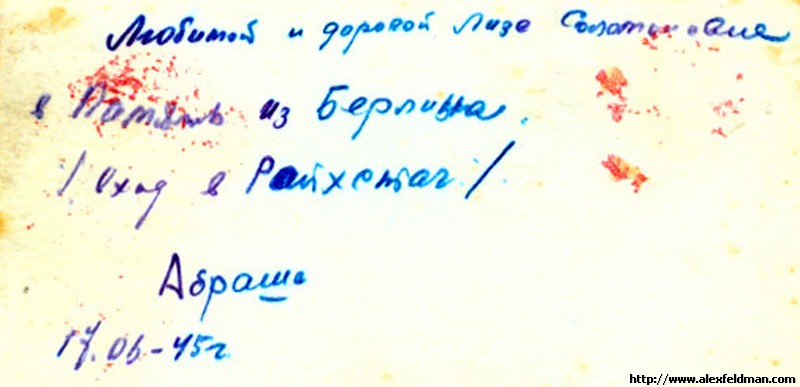 Любимой и дорогой Лизе Соломоновне
в Память из Берлина.
/ Вход в Райхстаг. /
Абраша
17.06-45г.
http://www.alexfeldman.com